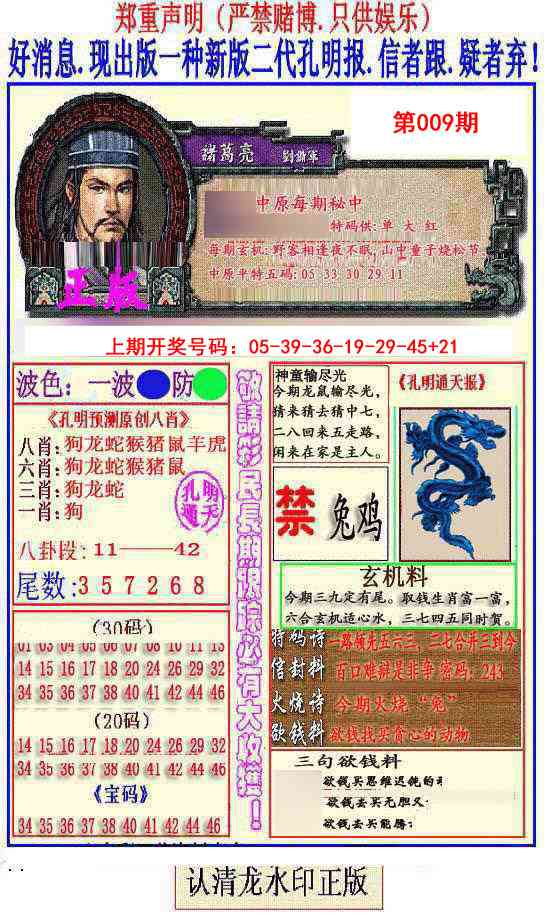 郑重声明（严禁赌博.只供娱乐）
好消息.现出版一种新版二代孔明报.信者跟.疑者弃！
第009期
諸葛亮 劉諧軍
中原每期秘中
特码供: 单 大 红
每期玄机: 野客相逢夜不眠, 山中童子烧松节
中原平特五码: 05 33 30 29 11
正版
上期开奖号码: 05-39-36-19-29-45+21
波色: 一波 防
《孔明预测原创八肖》
八肖: 狗龙蛇猴猪鼠羊虎
六肖: 狗龙蛇猴猪鼠
三肖: 狗龙蛇
一肖: 狗
孔明
通天
八卦段: 11——42
尾数: 3 5 7 2 6 8
(30码)
01 03 04 05 06 07 08 10 11 13
14 15 16 17 18 20 24 26 29 32
34 35 36 37 38 40 41 42 44 46
(20码)
14 15 16 17 18 20 24 26 29 32
34 35 36 37 38 40 41 42 44 46
《宝码》
34 35 36 37 38 40 41 42 44 46
敬請彩民長期跟踪必有大收獲！
神童输尽光
今期龙鼠输尽光，
猜来猜去猜中七，
二八回来五走路，
闲来在家是主人。
《孔明通天报》
禁 兔鸡
玄机料
今期三九定有尾。取钱生肖富一富，
六合玄机适心水，三七四五同时贺。
特码诗 一路领先五六三，三七合并三到今
信封料 百口难辩是非争 密码: 243
火烧诗 今期火烧“兔”
欲钱料 欲钱找买贪心的动物
三句欲钱料
欲钱买思维迟钝的
欲钱去买无胆
欲钱去买能腾
认清龙水印正版